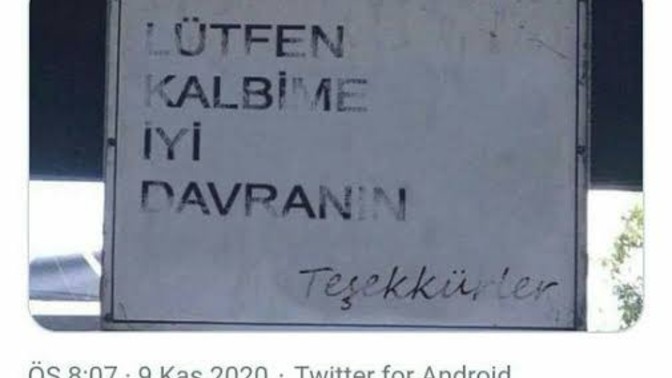 LÜTFEN
KALBİME
İYİ
DAVRANIN
Teşekkürler
ÖS 8:07 · 9 Kas 2020 · Twitter for Android